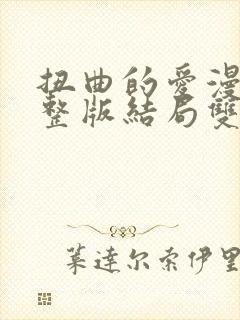 扭曲的愛漫
整版結局雙
葉達尔索伊里